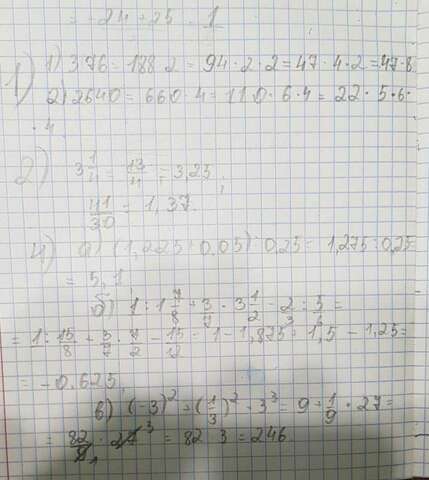 = -24+25 = 1
1) 1) 376 = 188·2 = 94·2·2 = 47·4·2 = 47·8
2) 2640 = 660·4 = 110·6·4 = 22·5·6·
·4
2) 3 1/4 = 13/4 = 3,25;
41/30 = 1,37.
4) а) (1,225+0,05):0,25 = 1,275:0,25
= 5,1
б) 1 : 1 7/8 + 3/7 · 3 1/2 - 2/3 : 5/6 =
= 1 : 15/8 + 3/7 · 7/2 - 15/12 = 1 - 1,875 + 1,5 - 1,25 =
= -0.625,
в) (-3)² + (1/3)² · 3³ = 9 + 1/9 · 27 =
= 82/9 · 27 3 = 82 3 = 246.